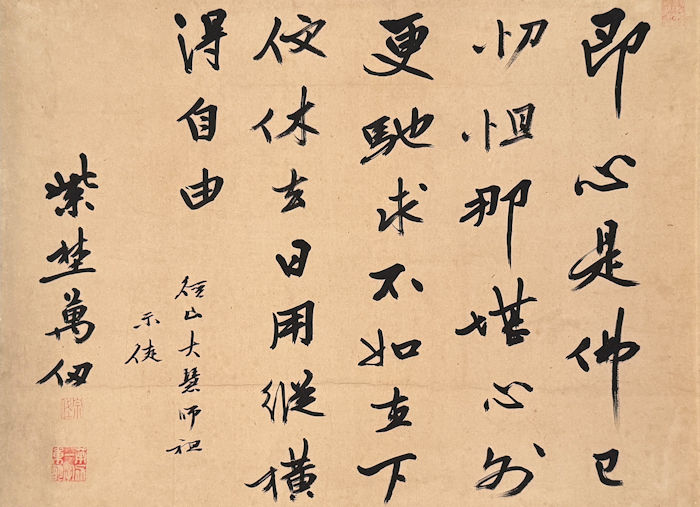 即心是佛已
忉怛那堪心外
更馳求不如直下
便休去日用縱橫
得自由
徑山大慧師祖
示徒
紫埜萬仞